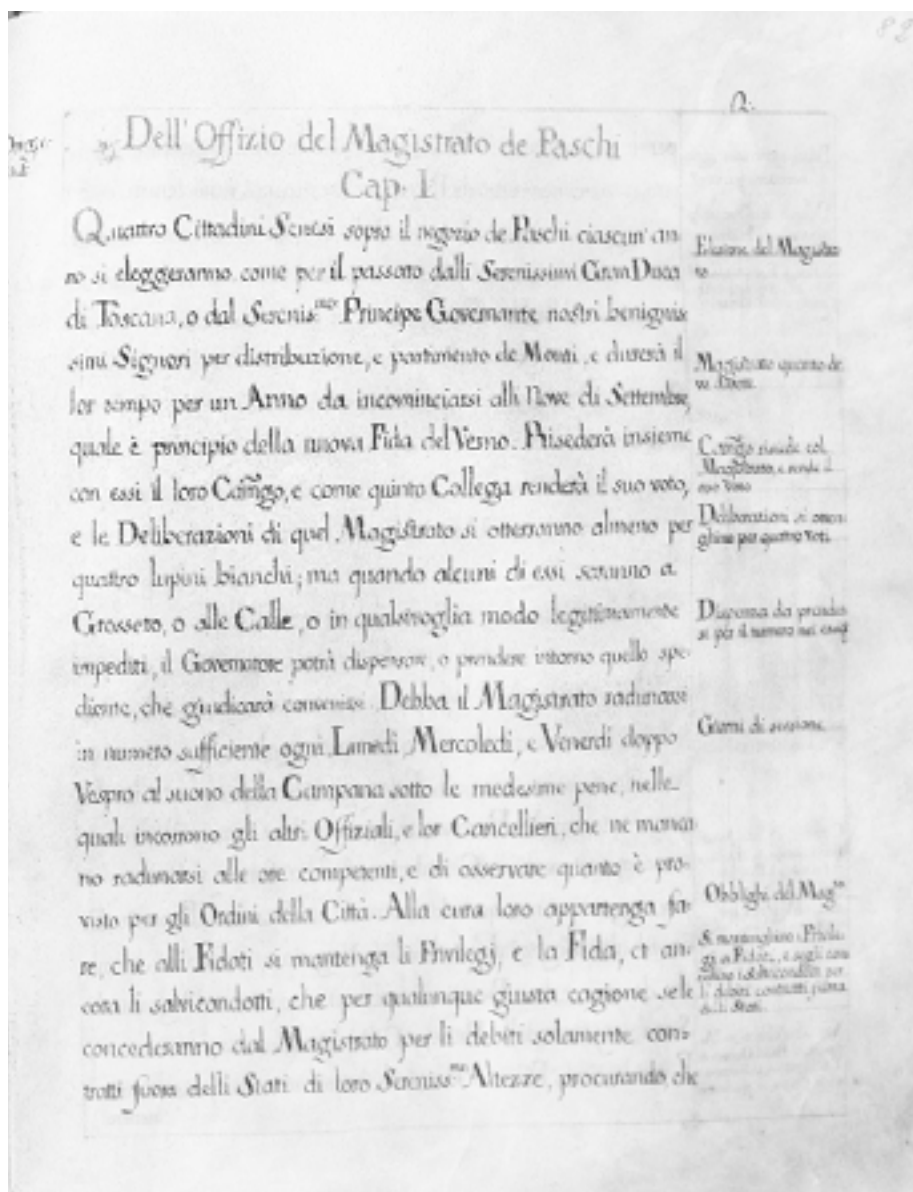 82
2.
Dell' Offizio del Magistrato de Paschi
Cap. I
Quattro Cittadini Senesi sopra il negozio de Paschi ciascun' an-
no si eleggeranno come per il passato dalli Serenissimi Gran Duca
di Toscana, o dal Serenis.mo Principe Governante nostri benignis
simi Signori per distribuzione, e partimento de Monti, e durerà il
lor tempo per un Anno da incominciarsi alli Nove di Settembre
quale è principio della nuova Fida del Verno. Risederà insieme
con essi il loro Camgo, e come quinto Collega renderà il suo voto,
e le Deliberazioni di quel Magistrato si otterranno almeno per
quattro lupini bianchi; ma quando alcuni di essi saranno a
Grosseto, o alle Calle, o in qualsivoglia modo legittimamente
impediti, il Governatore potrà dispensare, o prendere intorno quello spe-
diente, che giudicarà convenirsi. Debba il Magistrato radunarsi
in numero sufficiente ogni Lunedì, Mercoledì, e Venerdì doppo
Vespro al suono della Campana sotto le medesime pene, nelle
quali incorrono gli altri Offiziali, e lor Cancellieri, che ne manca
no radunarsi alle ore competenti, e di osservare quanto è pro-
visto per gli Ordini della Città. Alla cura loro appartenga fa-
re, che alli Fidati si mantenga li Privilegj, e la Fida, et an-
cora li salvicondotti, che per qualunque giusta cagione sele
concederanno dal Magistrato per li debiti solamente con-
tratti fuora delli Stati di loro Sereniss.me Altezze, procurando che
Elezione del Magistra
to
Magistrato quanto de
va
Camgo risiede col
Magistrato, e rende il
suo Voto
Deliberazioni si otten
ghino per quattro voti
Dispensa da prender
si per il numero nei casi
Giorni di sessione
Obblighi del Mag.to
Si mantenghino i Privile
gj a Fidati, e
salvicondotti per
li debiti contratti fuora
delli Stati